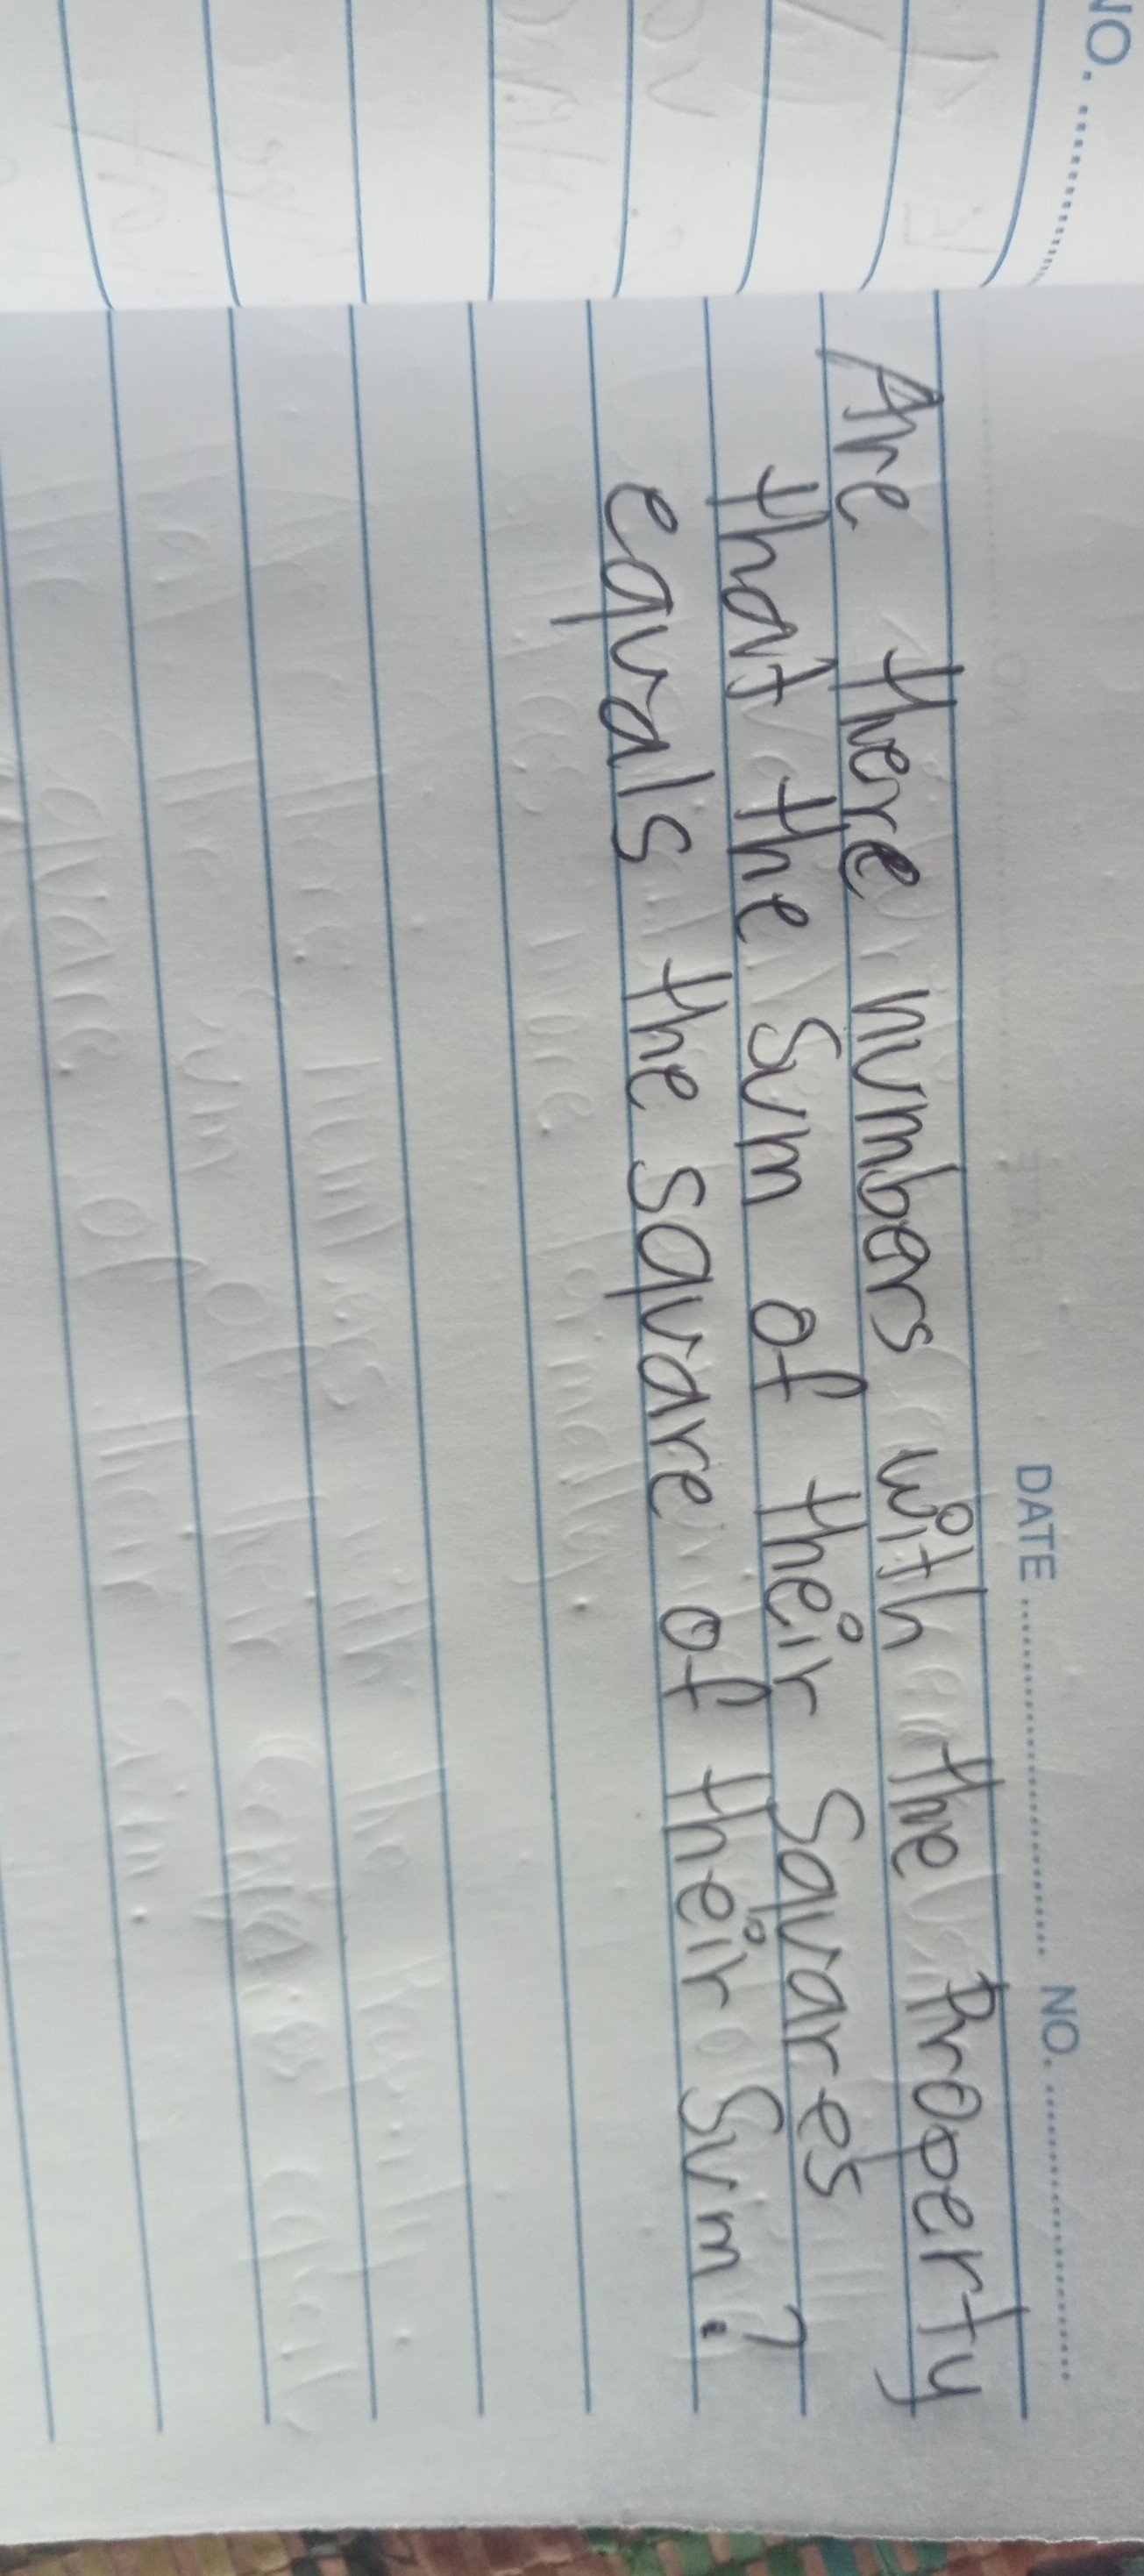 NO.
DATE NO.
Are there numbers with the Property
that the Sum of their Squares
equals the square of their Sum?